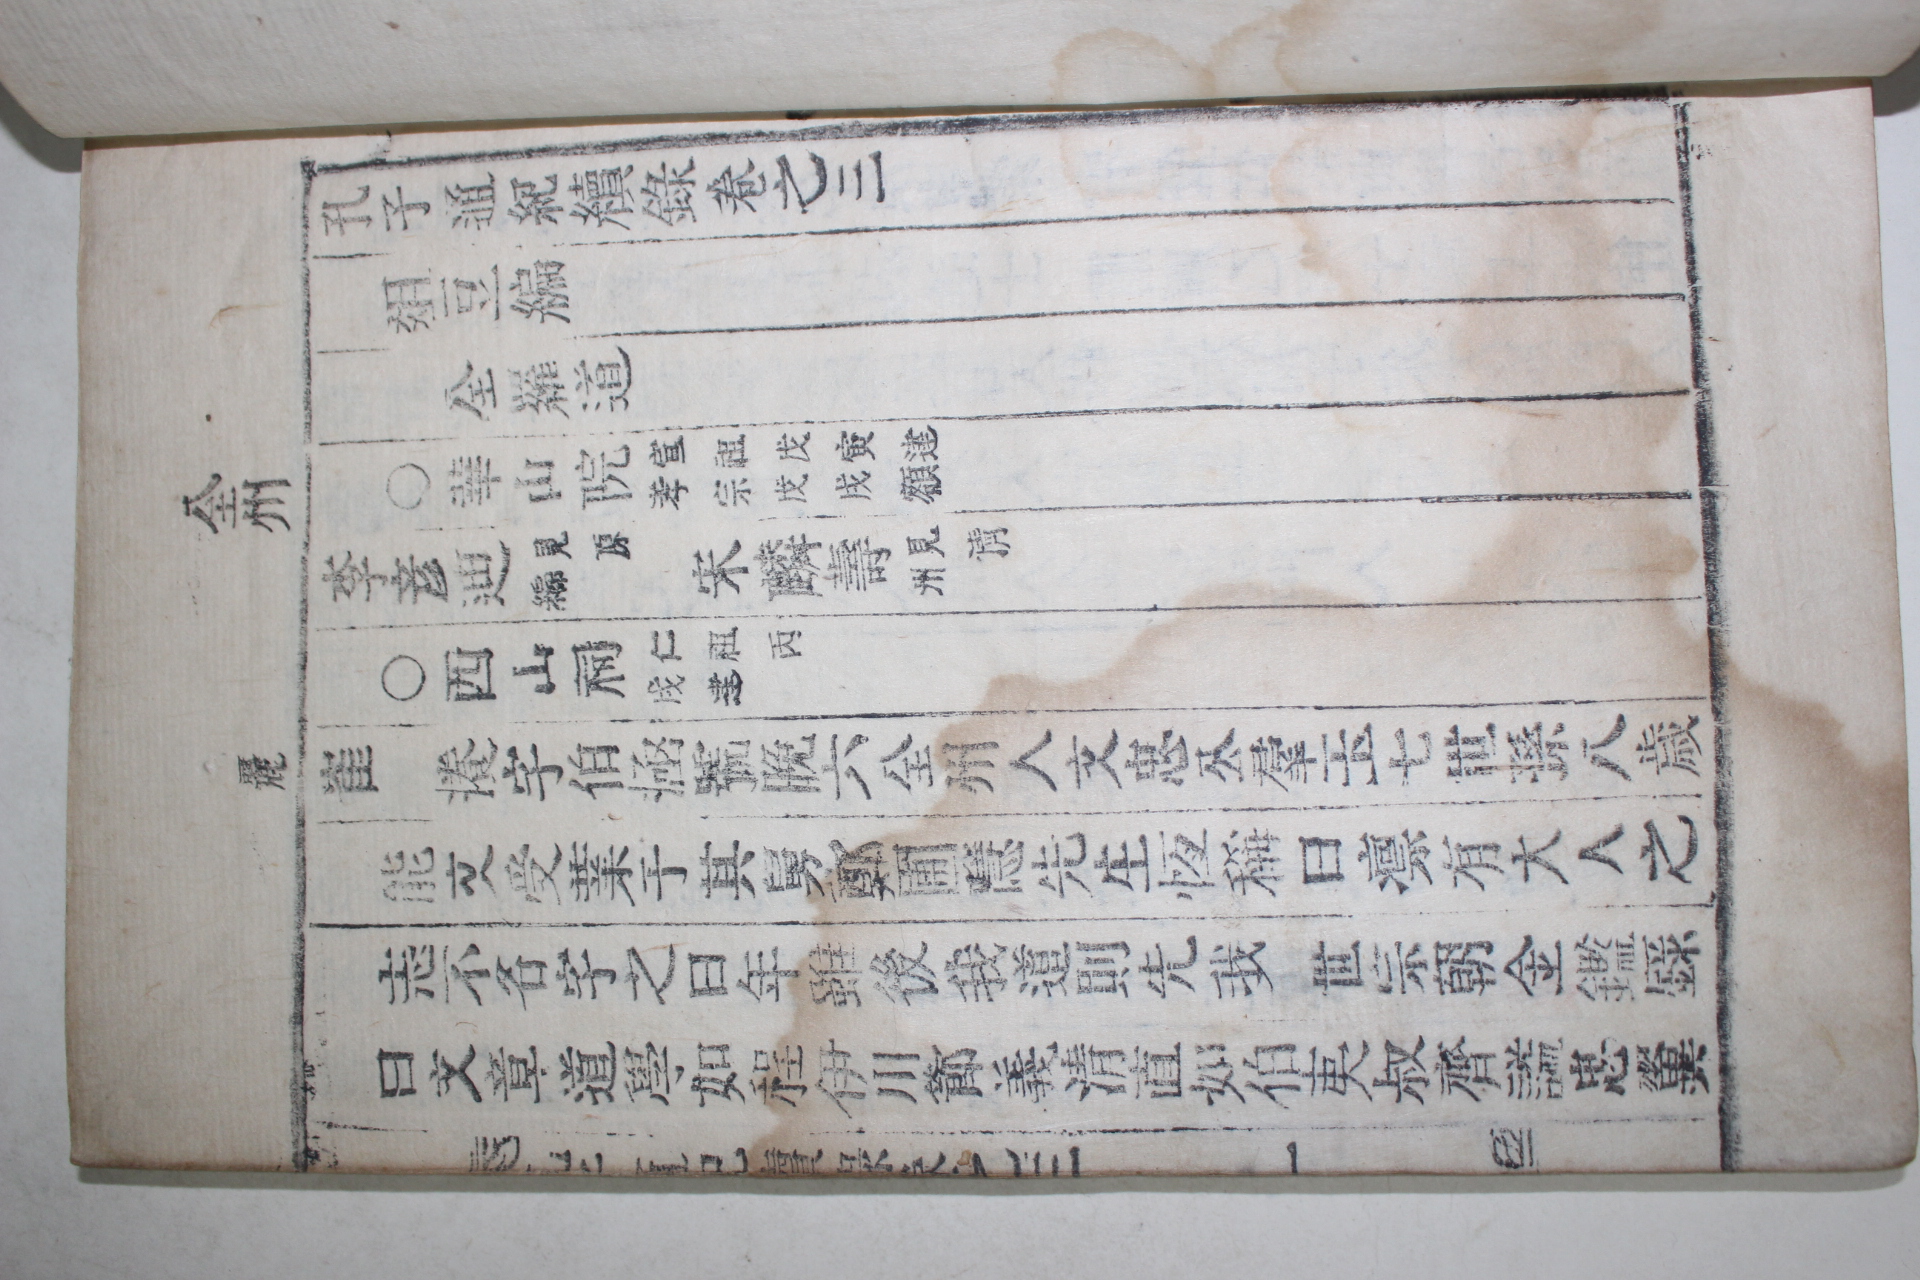 孔子通紀續錄卷之三
俎豆編
全羅道
全州
○華山院 宣祖戊寅建 孝宗戊戌額
李彦迪 見原編 宋麟壽 見淸州
○西山祠 仁祖丙戌建
麗
崔瀁字伯涵號晩六全州人文忠公羣玉七世孫八歲
能文受業于其舅鄭圃隱先生恆稱曰凛有大人之
志不名字之曰年雖後我道則先我 世宗朝金鑑錄
曰文章道學如程伊川節義清直如伯夷叔齊諡忠翼